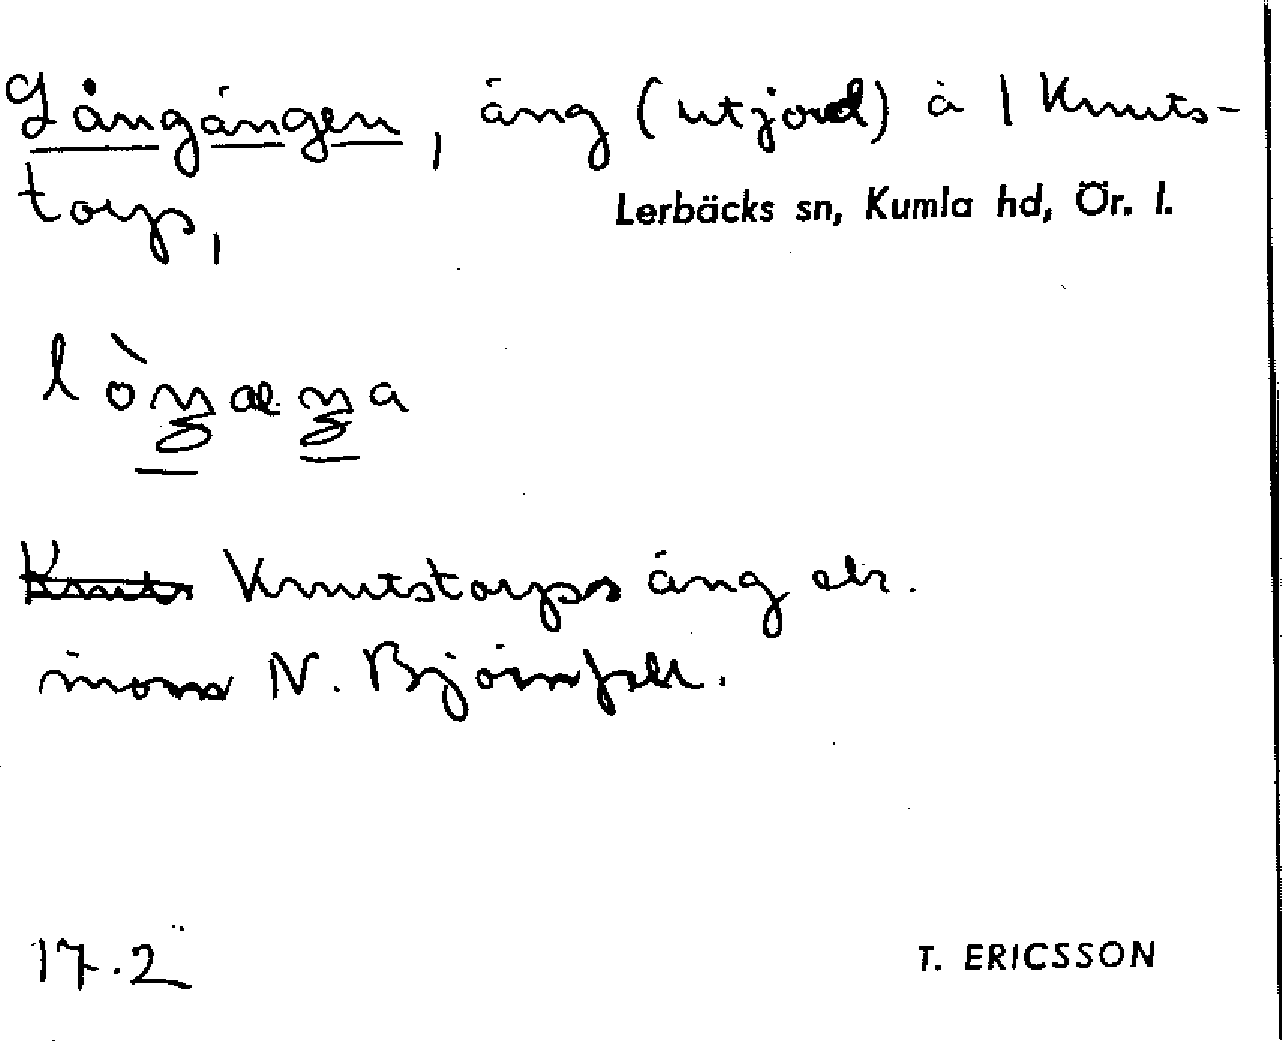 Långängen, äng (utjord) å 1 Knuts-
torp,
Lerbäcks sn, Kumla hd, Ör. l.
Knuts Knutstorps äng el.
inom N. Björnfall.
17.2
T. ERICSSON